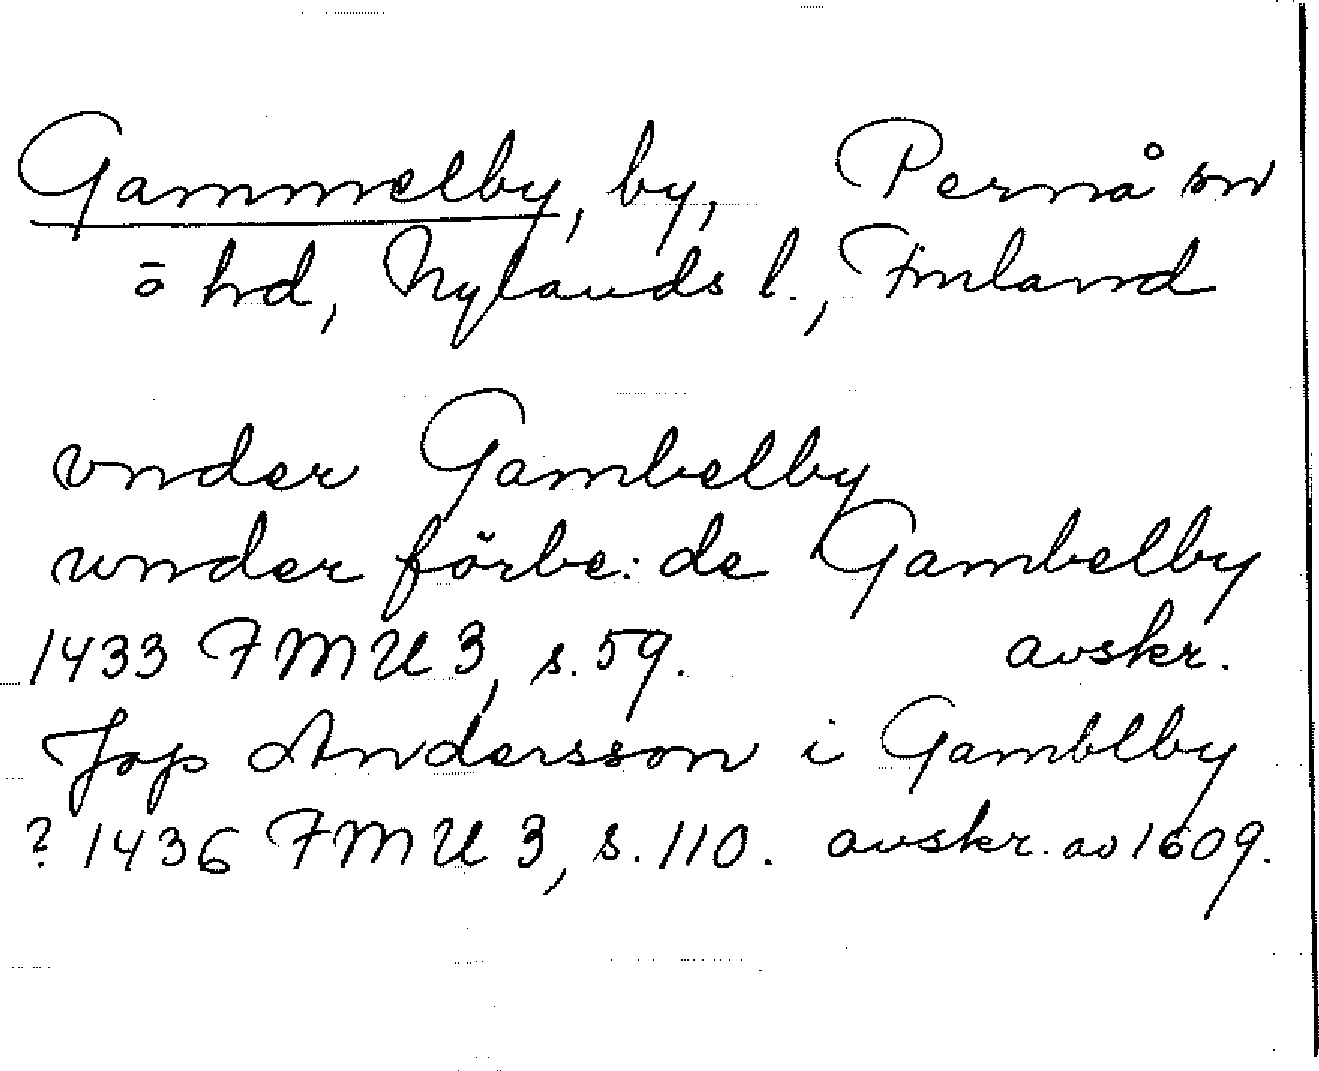 Gammelby, by, Pernå sn
ō hd, Nylands l., Finland
vnder Gambelby
wnder förbe:de Gambelby
1433 FMU 3, s. 59. avskr.
Jop Andersson i Gamblby
? 1436 FMU 3, s. 110. avskr. av 1609.